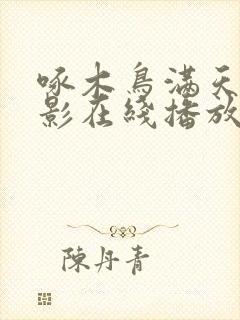 啄木鳥滿天
影在綫播放
陳丹青